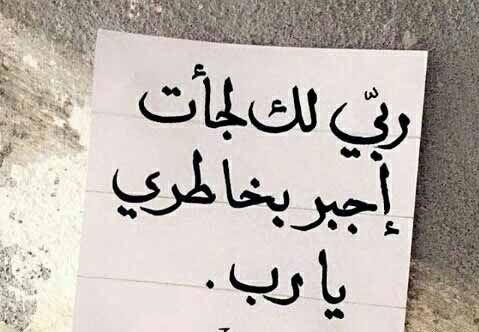 ربّي لك لجأت
إجبر بخاطري
يا رب .